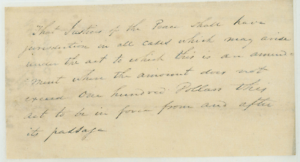 That Justices of the Peace shall have
jurisdiction in all cases which may arise
under the act to which this is an amend-
ment when the amount does not
exceed one hundred Dollars This
act to be in force from and after
its passage